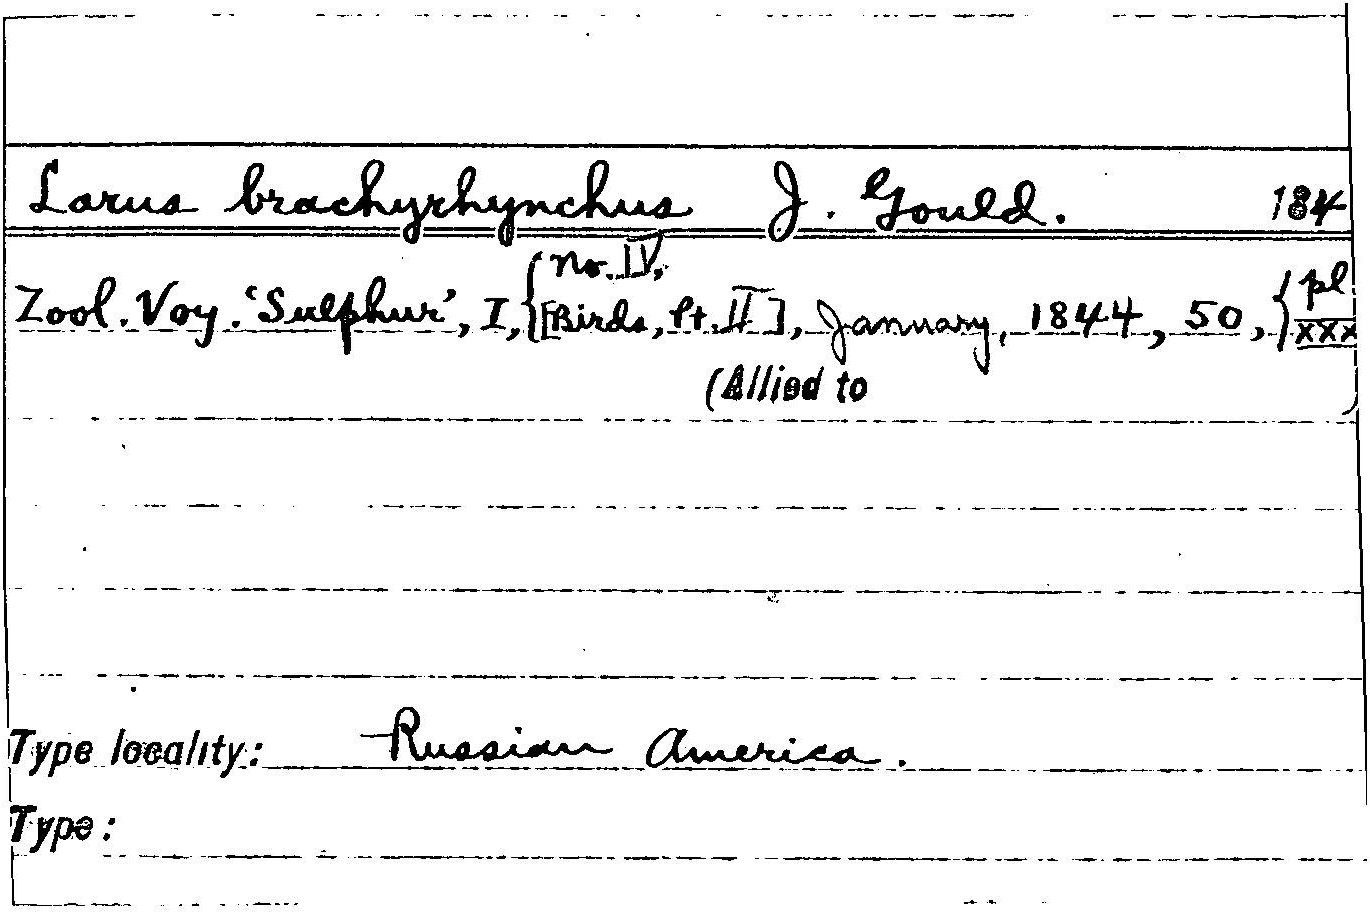 Larus brachyrhynchus J. Gould. 184
No. IV,
Zool. Voy. 'Sulphur', I, { [Birds, Pt. II], January, 1844, 50, { pl xxx
(Allied to )
Type locality: Russian America.
Type: